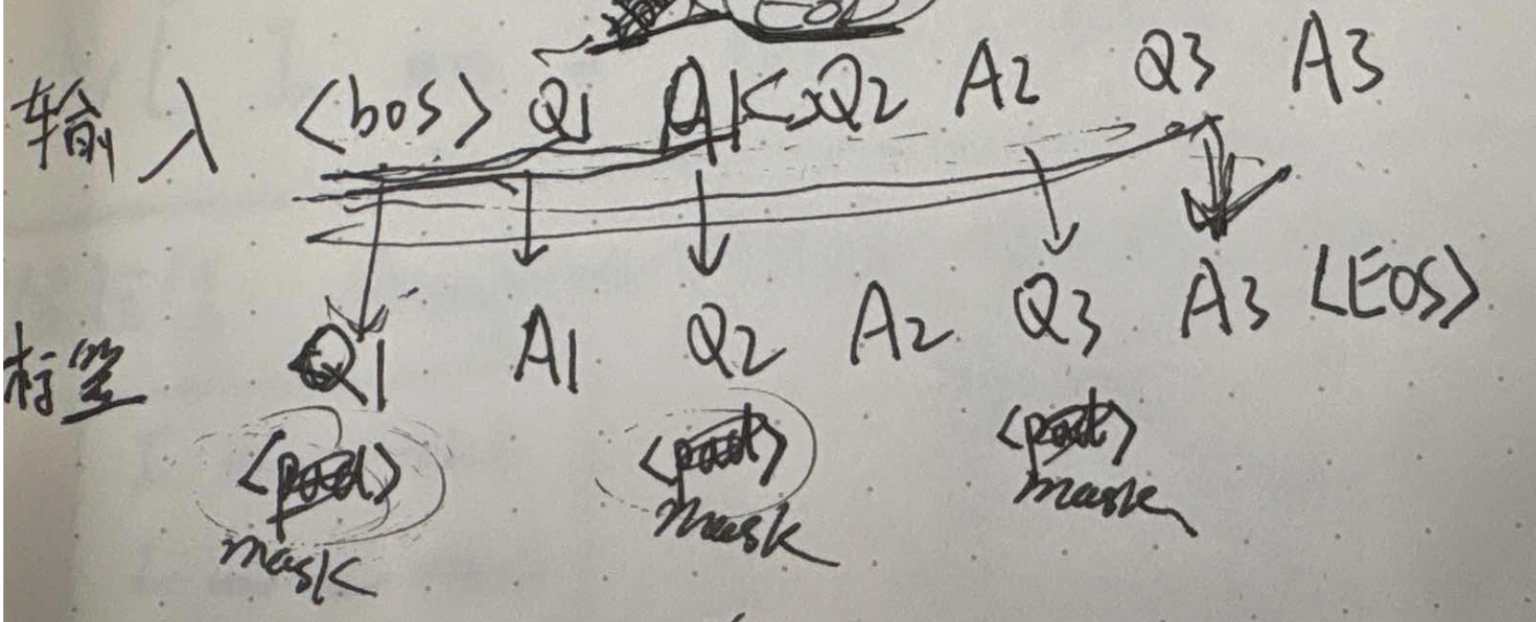 EOD
输入 <bos> Q1 A1 <> Q2 A2 Q3 A3
标签 Q1 A1 Q2 A2 Q3 A3 <EOS>
<pad> <pad> <pad>
mask mask mask